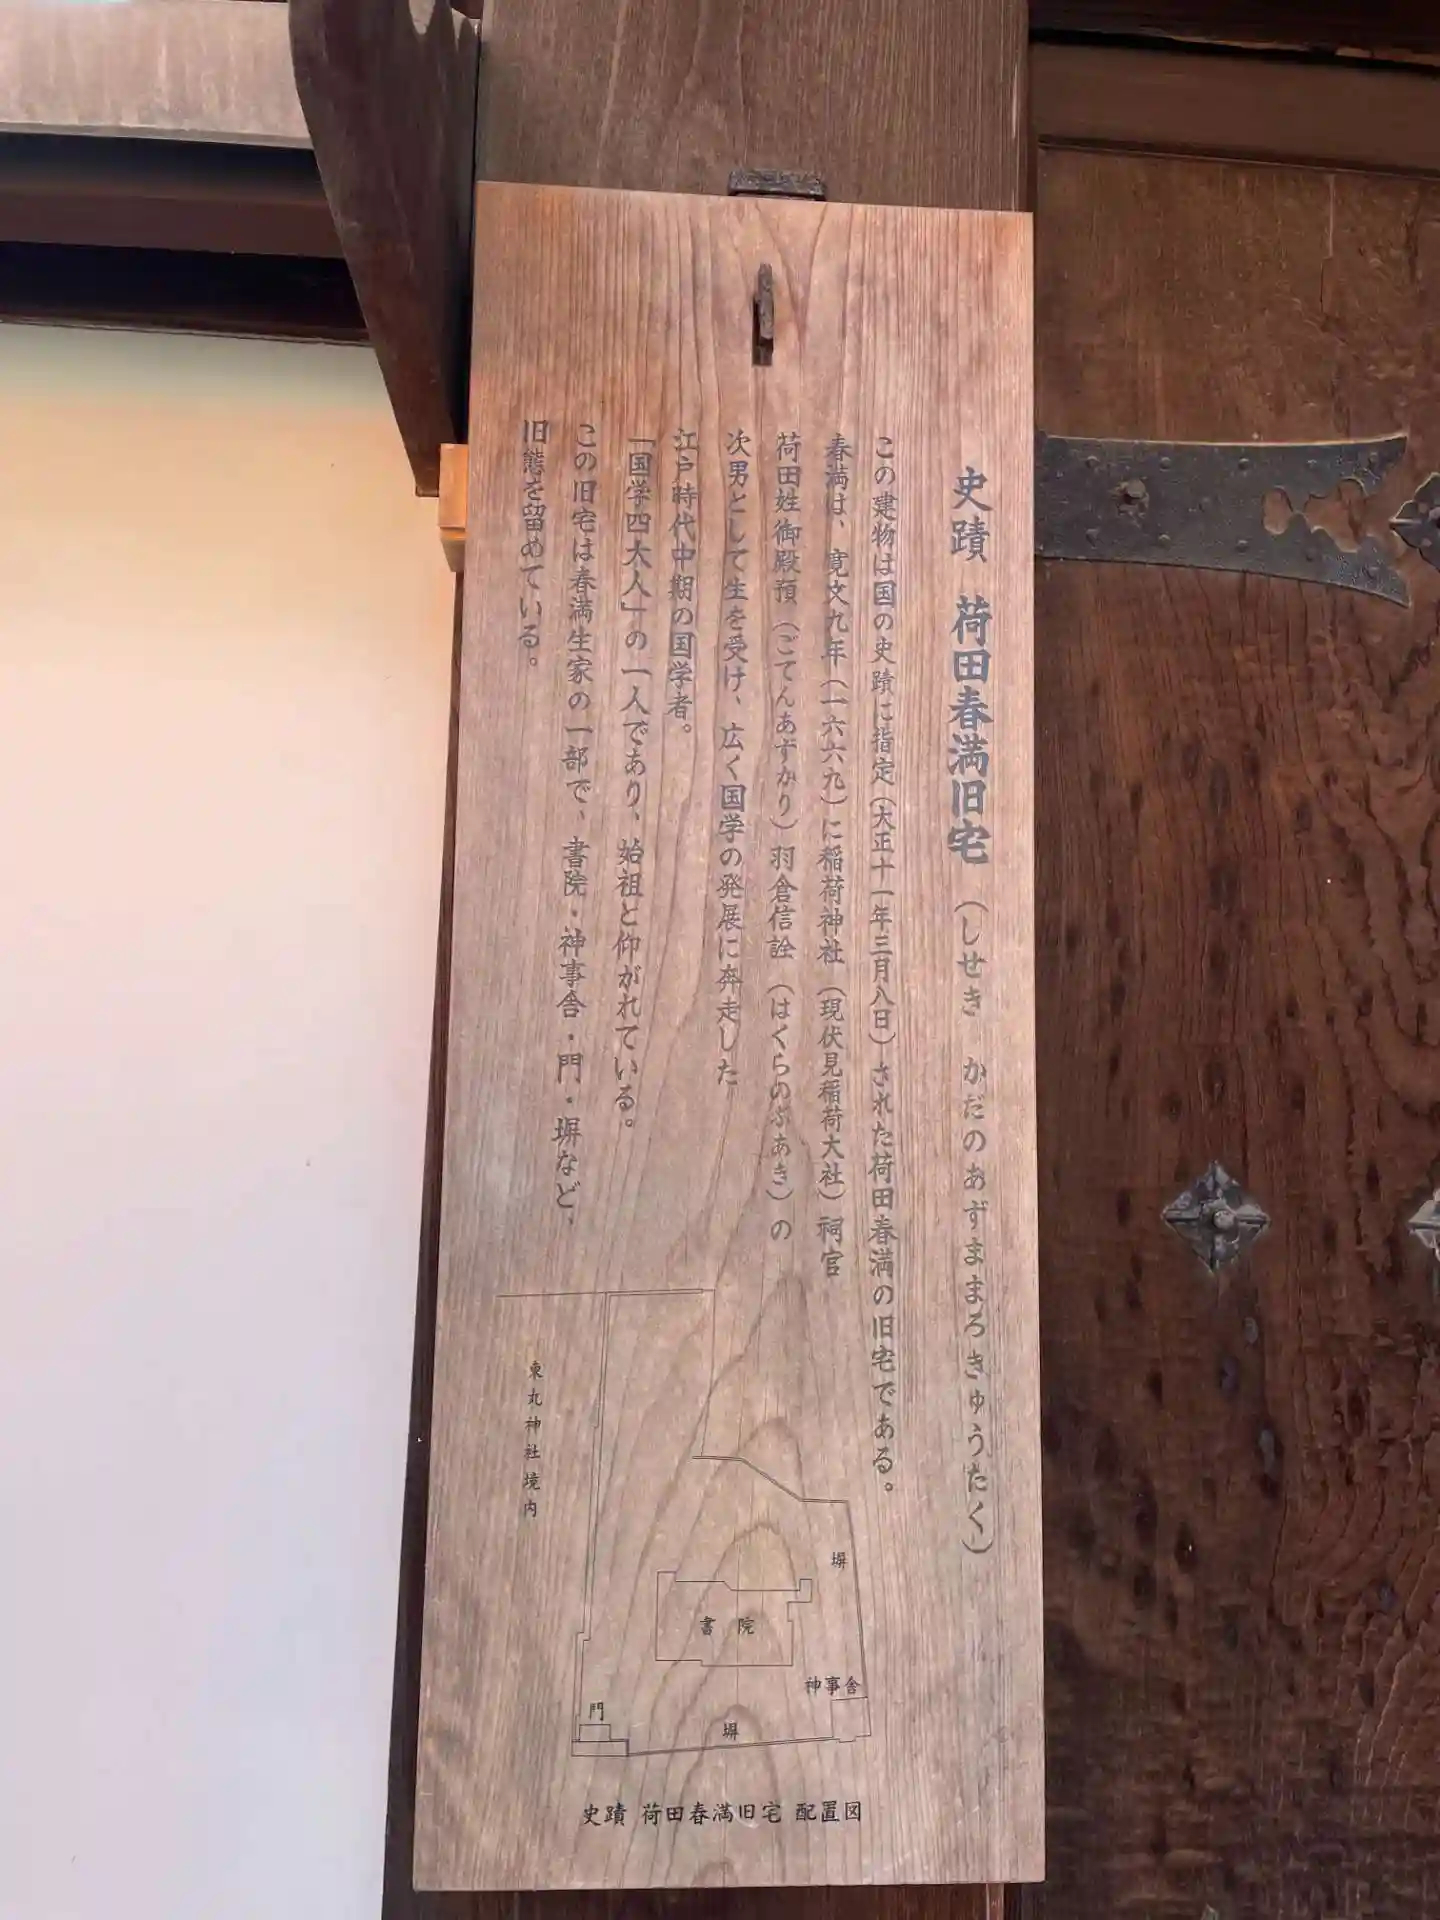 史蹟 荷田春満旧宅 (しせき かだのあずままろきゅうたく)
この建物は国の史蹟に指定(大正十一年三月八日)された荷田春満の旧宅である。
春満は、寛文九年(一六六九)に稲荷神社(現伏見稲荷大社)祠官
荷田姓御殿預(ごてんあずかり)羽倉信詮(はくらのぶあき)の
次男として生を受け、広く国学の発展に奔走した
江戸時代中期の国学者。
「国学四大人」の一人であり、始祖と仰がれている。
この旧宅は春満生家の一部で、書院・神事舎・門・塀など、
旧態を留めている。
東丸神社境内
塀
書院
神事舎
門
塀
史蹟 荷田春満旧宅 配置図